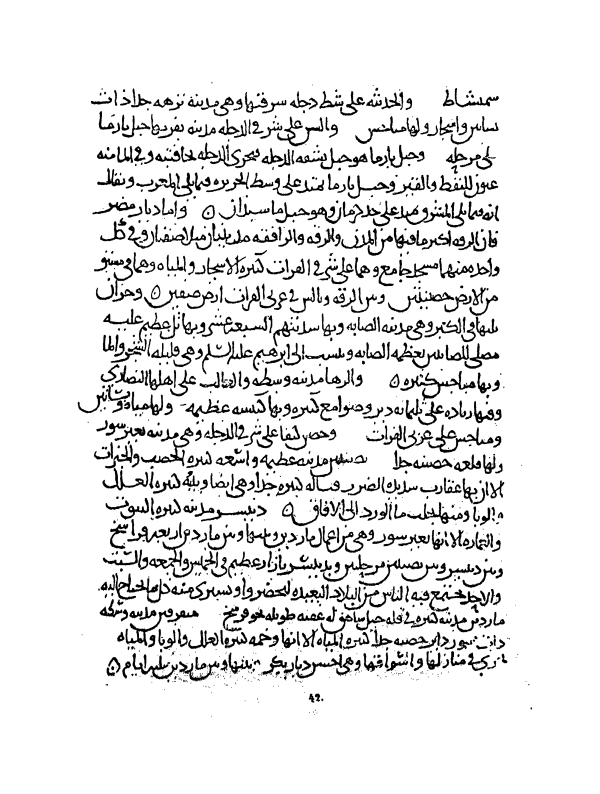 سمنشاط والحدثه على شط دجله سرقتها وهى مدينه نزهه جدا ذات
بساتين واشجار ولها مباخس والسن على شرقى الدجله مدينه بقربها جبل بارما
على مرحله وجبل بارما هو جبل يشقه الدجله فتجرى الدجله بحافتيه وفى الما منه
عيون للنفط والقير وجبل بارما يمتد على وسط الجزيره مما يلى المغرب ويقال
انه مما يلى المشرق يمتد على حد كرمان وهو جبل ماسبذان واما ديار مضر
فان الرقه اكبر ما فيها من المدن والرقه والرافقه مدينتان متلاصقتان وفى كل
واحده منهما مسجد جامع وهما على شرقى الفرات كثيره الاشجار والمياه وهما فى مستو
من الارض خصبتين وبين الرقه وبالس فى غربى الفرات ارض صفين وحران
يليها فى الكبر وهى مدينه الصابه وبها سدنتهم السبعه عشر وبها تل عظيم عليه
مصلى للصابين يعظمه الصابه وينسب الى ابرهيم عليه السلم وهى قليله الشجر والما
وبها مباخس كثيره والرها مدينه وسطه والغالب على اهلها النصارى
وفيها زياده على ثلثمايه دير وصوامع كثيره وبها كنيسه عظيمه ولها مياه وبساتين
ومباخس على غربى الفرات وحصن كيفا على شرقى الدجله وهى مدينه بغير سور
ولها قلعه حصينه جدا نصيبين مدينه عظيمه واسعه كثيره الخصب والخيرات
الا ان بها عقارب شديده الضرر قتاله كثيره جدا وهى ايضا وبيه كثيره العلل
والوبا ومنها يجلب ما الورد الى الافاق دنيسر مدينه كثيره البيوت
والعماره الا انها بغير سور وهى من اعمال ماردين وبينها وبين ماردين اربعه فراسخ
وبين دنيسر وبين نصيبين مرحلتين وبدنيسر بازار عظيم فى الخميس والجمعه والسبت
والاحد يجتمع فيه الناس من البلاد البعيده للحضر واو يشترى منه كل ما يحتاج اليه
ماردين مدينه كثيره فى قله جبل شاهق له عقبه طويله نحو فرسخ ميفرقين مدينه وسطه
ذات سور دار حصينه جدا كثيره المياه الا انها وخمه كثيره العلل والوبا والمياه
تجرى فى منازلها واسواقها وهى احسن ديار بكر بينها وبين ماردين ثلثه ايام
42.